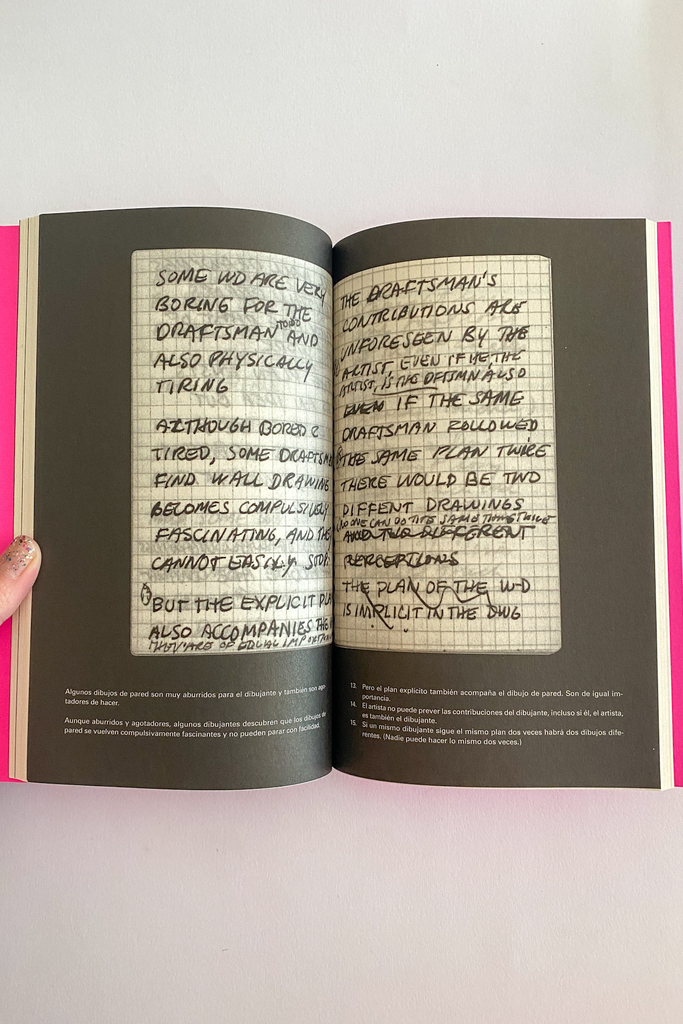 SOME WD ARE VERY
BORING FOR THE
DRAFTSMAN TO DO AND
ALSO PHYSICALLY
TIRING
ALTHOUGH BORED &
TIRED, SOME DRAFTSM
FIND WALL DRAWING
BECOMES COMPULSIVELY
FASCINATING, AND THE
CANNOT EASILY STOP.
BUT THE EXPLICIT PLA
ALSO ACCOMPANIES THE
THEY ARE OF EQUAL IMPORTAN
Algunos dibujos de pared son muy aburridos para el dibujante y también son ago-
tadores de hacer.
Aunque aburridos y agotadores, algunos dibujantes descubren que los dibujos de
pared se vuelven compulsivamente fascinantes y no pueden parar con facilidad.
THE DRAFTSMAN'S
CONTRIBUTIONS ARE
UNFORESEEN BY THE
ARTIST, EVEN IF HE, THE
ARTIST, IS THE DFTSMN ALSO
EVEN IF THE SAME
DRAFTSMAN FOLLOWED
THE SAME PLAN TWICE
THERE WOULD BE TWO
DIFFENT DRAWINGS
NO ONE CAN DO THE SAME THING TWICE
AND TWO DIFFERENT
PERCEPTIONS
THE PLAN OF THE W-D
IS IMPLICIT IN THE DWG
13. Pero el plan explícito también acompaña el dibujo de pared. Son de igual im-
portancia.
14. El artista no puede prever las contribuciones del dibujante, incluso si él, el artista,
es también el dibujante.
15. Si un mismo dibujante sigue el mismo plan dos veces habrá dos dibujos dife-
rentes. (Nadie puede hacer lo mismo dos veces.)